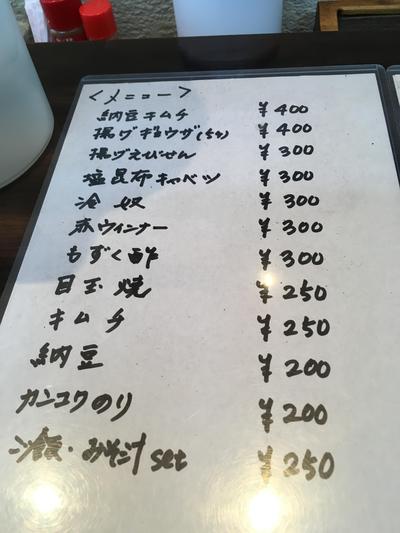 <メニュー>
納豆キムチ ¥400
揚げギョウザ(5ヶ) ¥400
揚げえびせん ¥300
塩昆布キャベツ ¥300
冷奴 ¥300
赤ウィンナー ¥300
もずく酢 ¥300
目玉焼 ¥250
キムチ ¥250
納豆 ¥200
カンコクのり ¥200
ご飯・みそ汁set ¥250